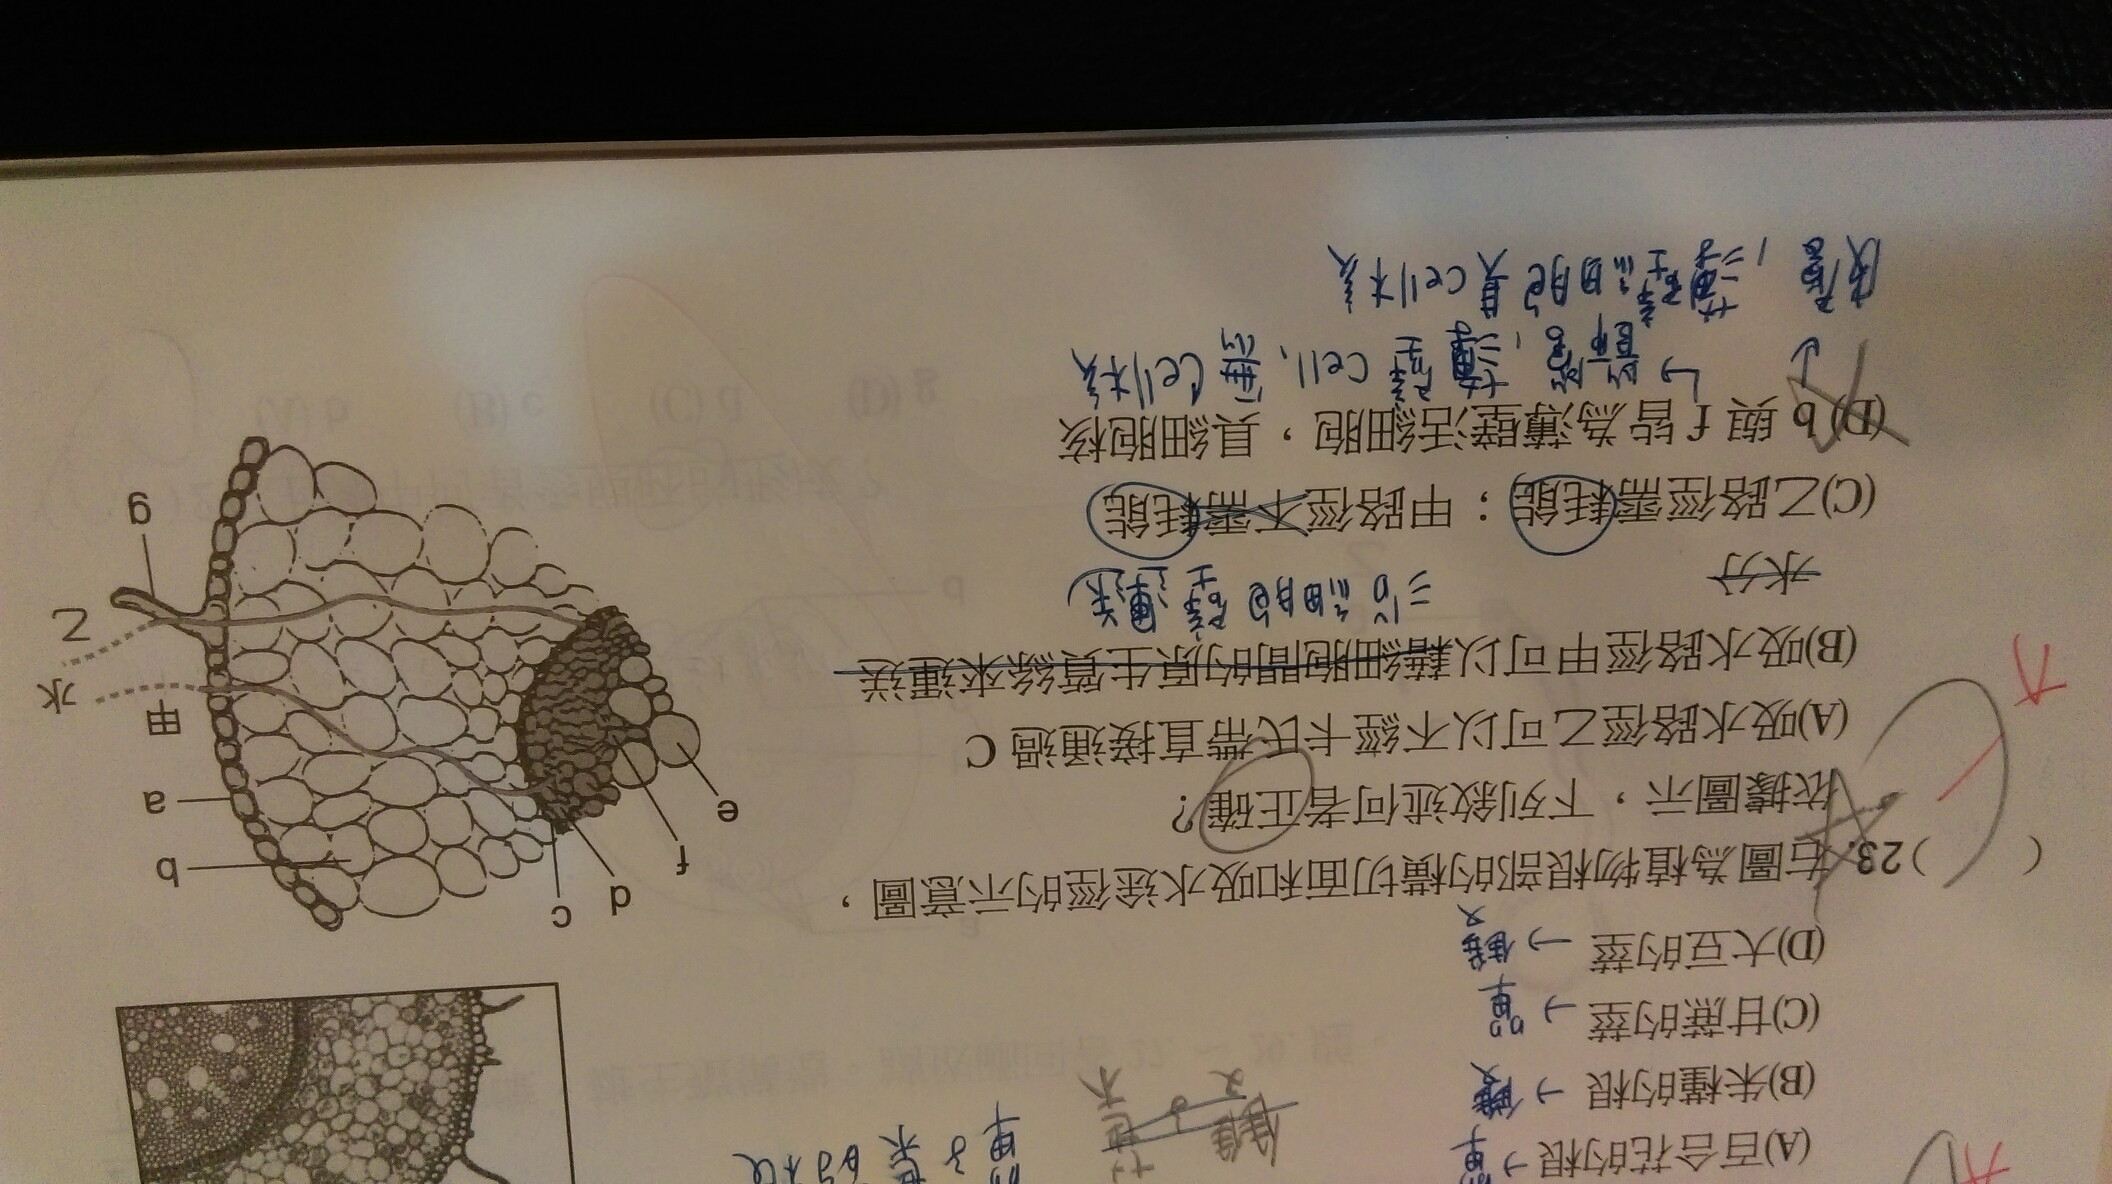 (A)百合花的根→單
(B)朱槿的根→雙
(C)甘蔗的莖→單
(D)大豆的莖→雙
( )23.右圖為植物根部的橫切面和吸水途徑的示意圖，
依據圖示，下列敘述何者正確？
(A)吸水路徑乙可以不經卡氏帶直接通過 C
(B)吸水路徑甲可以藉細胞間的原生質絲來運送
水分
沿細胞壁運送
(C)乙路徑需耗能；甲路徑不需耗能
(D) b 與 f 皆為薄壁活細胞，具細胞核
→篩管，薄壁cell，無cell核
皮層，薄壁細胞具cell核
c
d
f
e
b
a
甲
水
乙
g